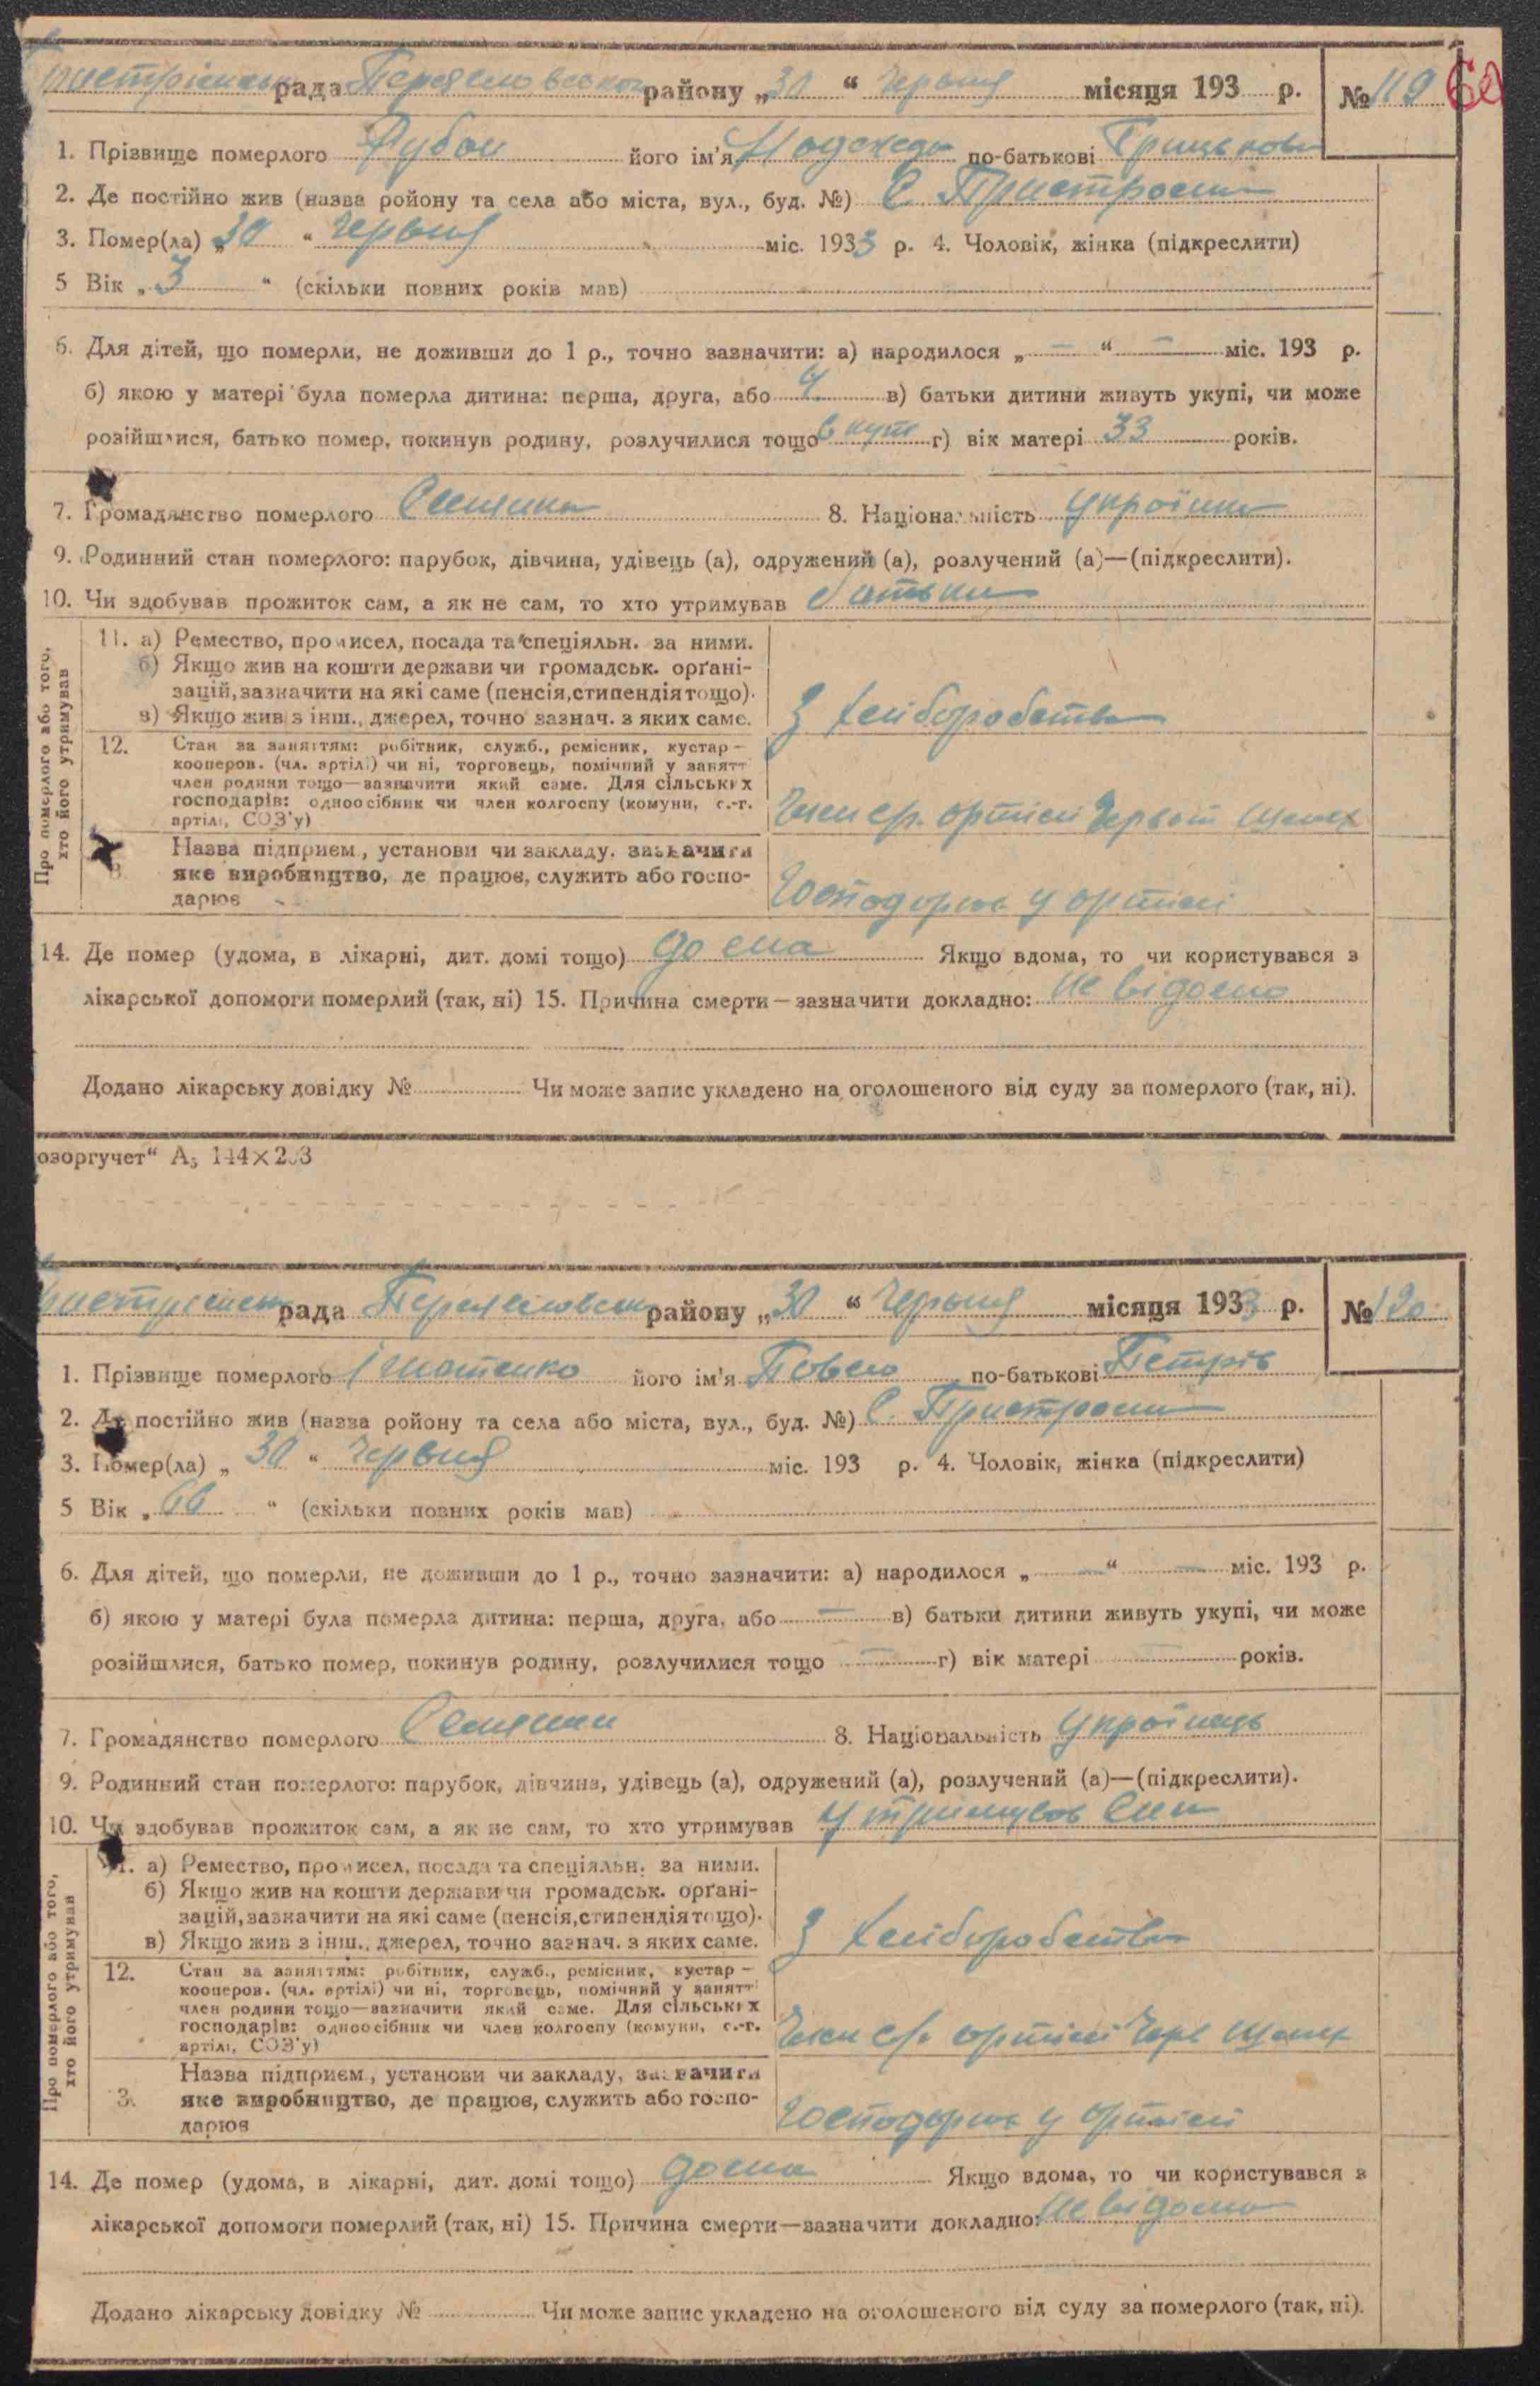 рада Переяславського району „30“ Червня місяця 193 р. № 119 60
1. Прізвище померлого його ім'я Надежда по-батькові Грицькова
2. Де постійно жив (назва ройону та села або міста, вул., буд. №) С. Пристроми
3. Помер(ла) „30“ Червня міс. 1933 р. 4. Чоловік, жінка (підкреслити)
5 Вік „3“ (скільки повних років мав)
6. Для дітей, що померли, не доживши до 1 р., точно зазначити: а) народилося „—“ — міс. 193 р.
б) якою у матері була померла дитина: перша, друга, або 4 в) батьки дитини живуть укупі, чи може
розійшлися, батько помер, покинув родину, розлучилися тощо вкупі г) вік матері 33 років.
7. Громадянство померлого Селянка 8. Національність Українка
9. Родинний стан померлого: парубок, дівчина, удівець (а), одружений (а), розлучений (а)—(підкреслити).
10. Чи здобував прожиток сам, а як не сам, то хто утримував батьки
Про померлого або того, хто його утримував
11. а) Ремество, промисел, посада та спеціяльн. за ними.
б) Якщо жив на кошти держави чи громадськ. орґані-
зацій, зазначити на які саме (пенсія, стипендія тощо).
в) Якщо жив з інш., джерел, точно зазнач. з яких саме. З хліборобства
12. Стан за заняттям: робітник, служб., ремісник, кустар —
кооперов. (чл. артілі) чи ні, торговець, помічний у занятт
член родини тощо—зазначити який саме. Для сільських
господарів: одноосібник чи член колгоспу (комуни, с.-г.
артілі, СОЗ'у) Член с/г. артілі Червоний шлях
Назва підприєм., установи чи закладу, зазначити
яке виробництво, де працює, служить або госпо-
дарює Господарює у артілі
14. Де помер (удома, в лікарні, дит. домі тощо) дома Якщо вдома, то чи користувався з
лікарської допомоги померлий (так, ні) 15. Причина смерти—зазначити докладно: не відомо
Додано лікарську довідку № Чи може запис укладено на оголошеного від суду за померлого (так, ні).
озоргучет“ А5 144×203
рада Переяславського району „30“ Червня місяця 1933 р. № 120
1. Прізвище померлого Ігнатенко його ім'я Павло по-батькові Петрів
2. Де постійно жив (назва ройону та села або міста, вул., буд. №) С. Пристроми
3. Помер(ла) „30“ Червня міс. 193 р. 4. Чоловік, жінка (підкреслити)
5 Вік „66“ (скільки повних років мав)
6. Для дітей, що померли, не доживши до 1 р., точно зазначити: а) народилося „—“ — міс. 193 р.
б) якою у матері була померла дитина: перша, друга, або — в) батьки дитини живуть укупі, чи може
розійшлися, батько помер, покинув родину, розлучилися тощо — г) вік матері — років.
7. Громадянство померлого Селянин 8. Національність Українець
9. Родинний стан померлого: парубок, дівчина, удівець (а), одружений (а), розлучений (а)—(підкреслити).
10. Чи здобував прожиток сам, а як не сам, то хто утримував утримував син
Про померлого або того, хто його утримував
11. а) Ремество, промисел, посада та спеціяльн. за ними.
б) Якщо жив на кошти держави чи громадськ. орґані-
зацій, зазначити на які саме (пенсія, стипендія тощо).
в) Якщо жив з інш., джерел, точно зазнач. з яких саме. З хліборобства
12. Стан за заняттям: робітник, служб., ремісник, кустар —
кооперов. (чл. артілі) чи ні, торговець, помічний у занятт
член родини тощо—зазначити який саме. Для сільських
господарів: одноосібник чи член колгоспу (комуни, с.-г.
артілі, СОЗ'у) Член с/г. артілі Черв шлях
Назва підприєм., установи чи закладу, зазначити
3. яке виробництво, де працює, служить або госпо-
дарює Господарює у артілі
14. Де помер (удома, в лікарні, дит. домі тощо) дома Якщо вдома, то чи користувався з
лікарської допомоги померлий (так, ні) 15. Причина смерти—зазначити докладно: не відомо
Додано лікарську довідку № Чи може запис укладено на оголошеного від суду за померлого (так, ні).